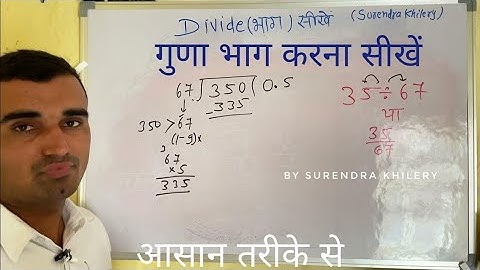 Divide(भाग) सीखें (Surendra Khilery)
गुणा भाग करना सीखें
67)350(0.5
335
350 > 67
(1-9)x
67
x5
335
35 ÷ 67
या
35
67
BY SURENDRA KHILERY
आसान तरीके से